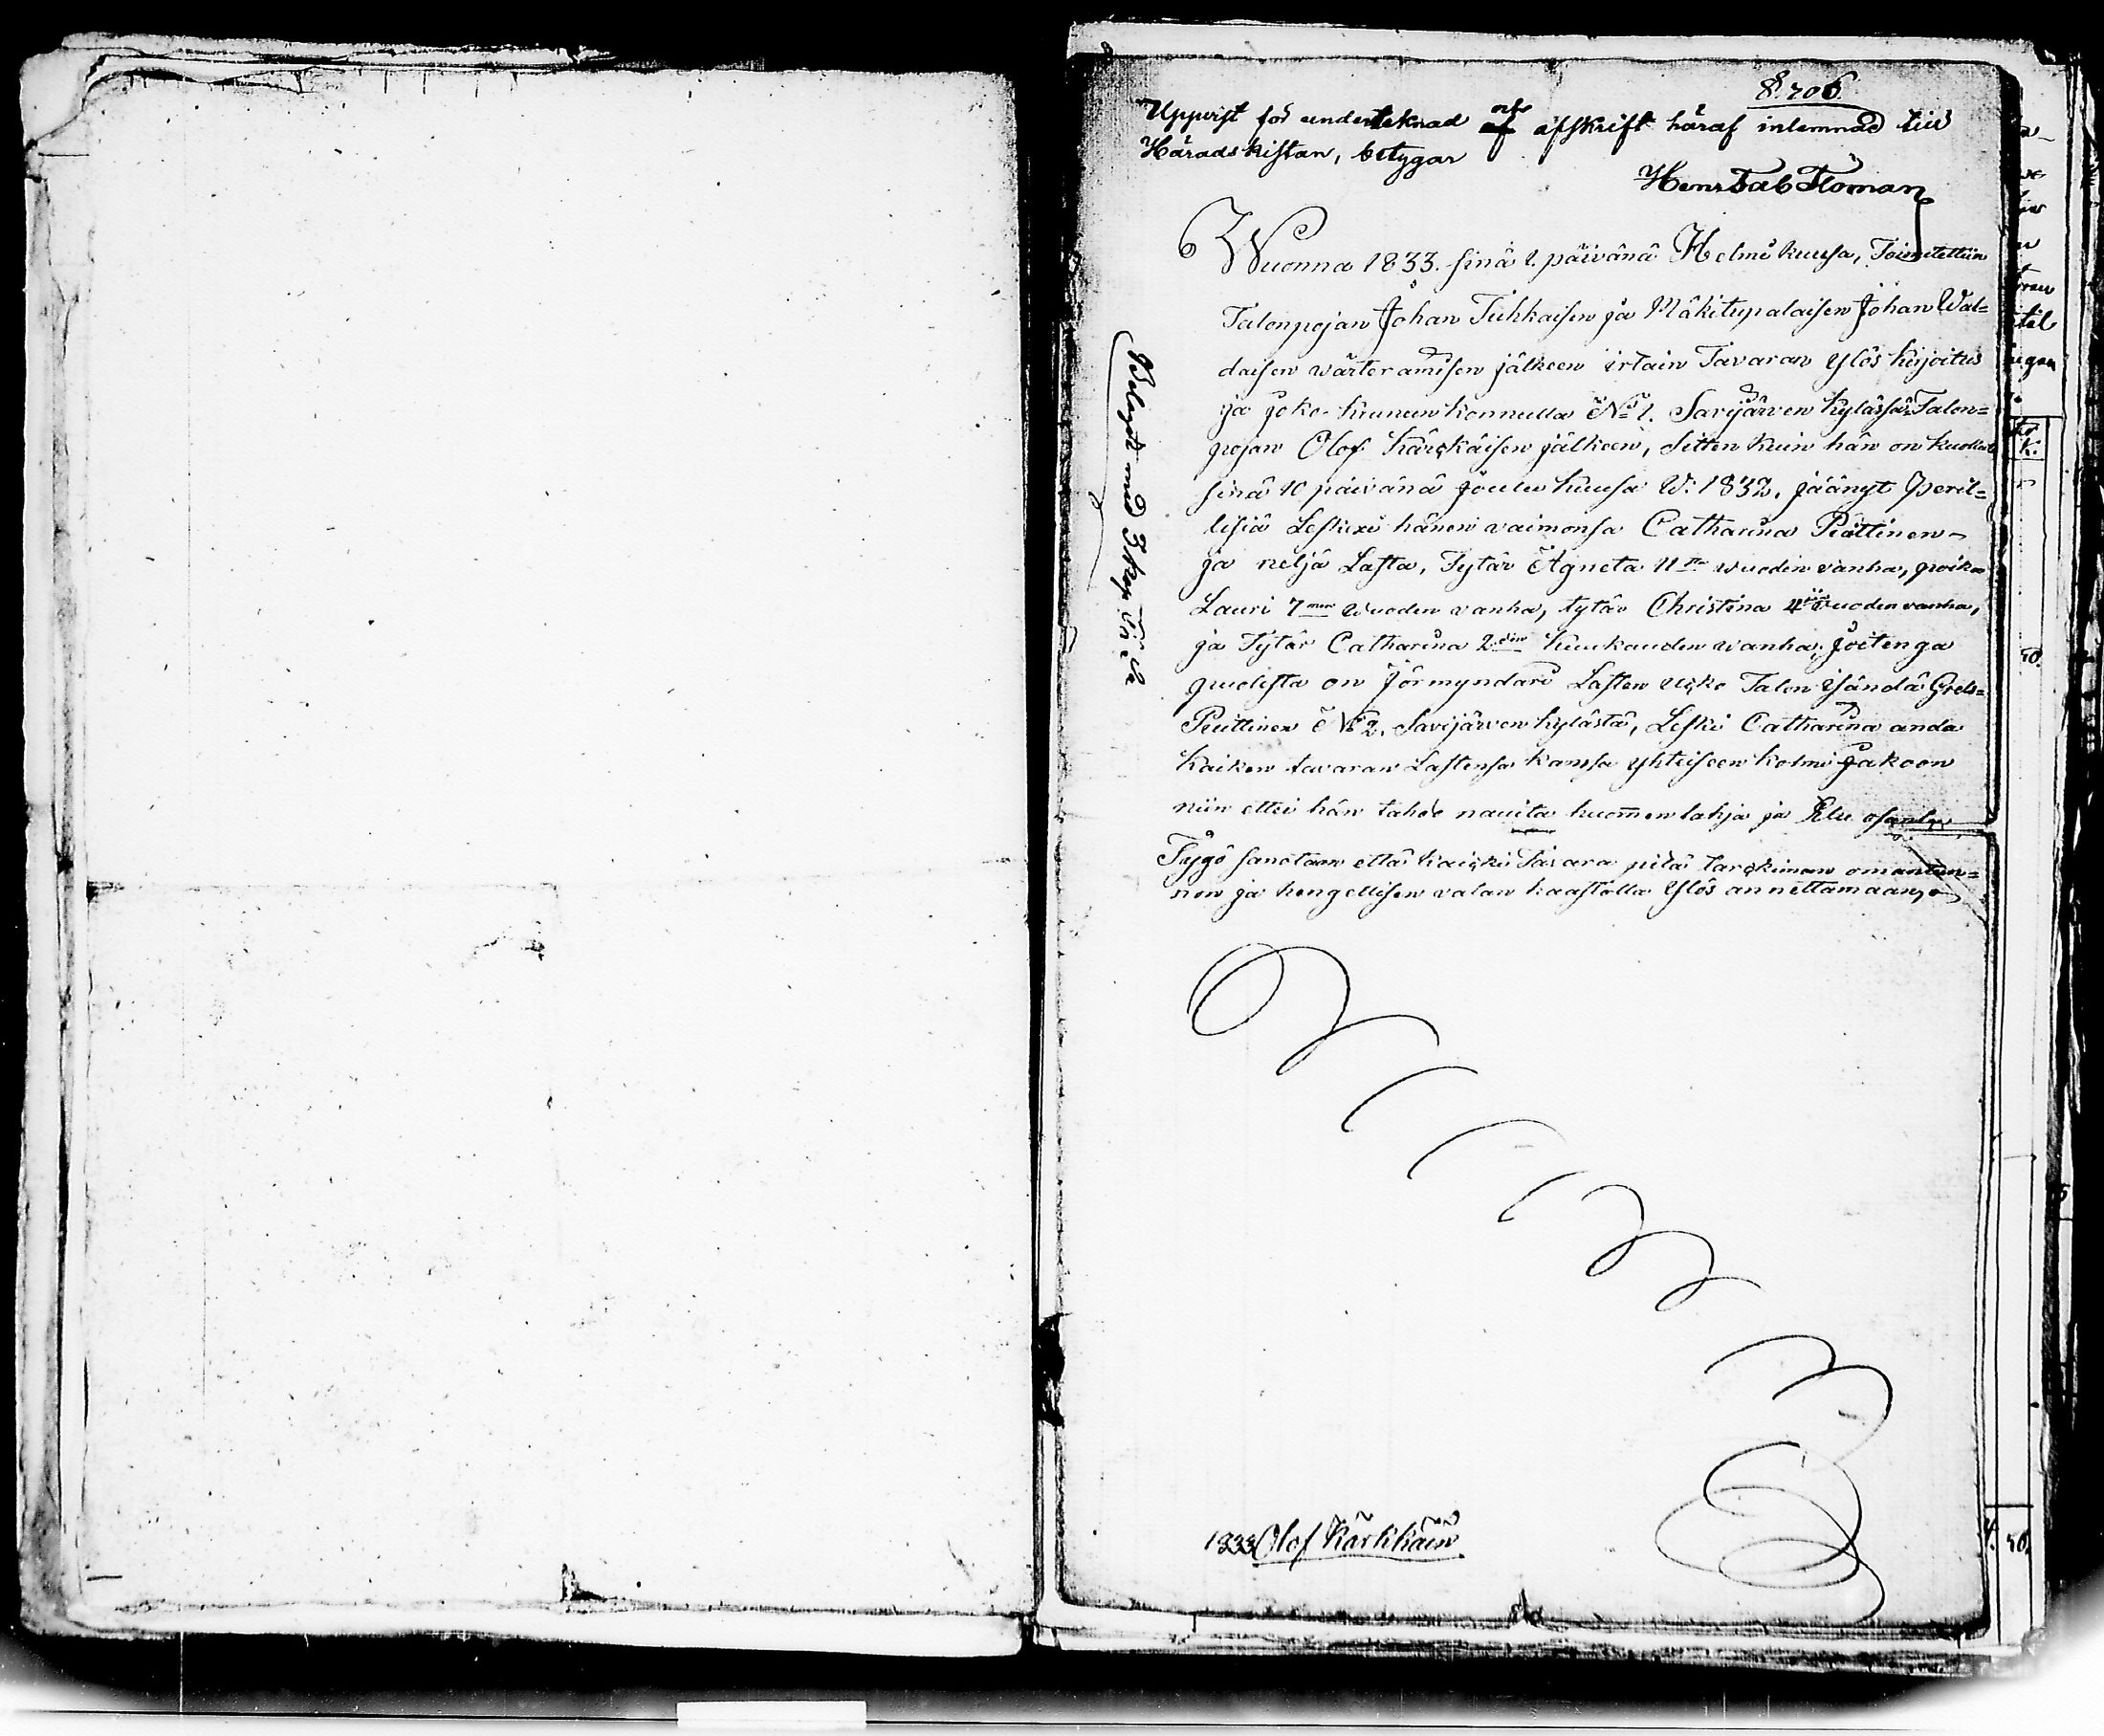 8.706.
Uppvist för undertecknad och afskrift häraf inlemnad till
Häradskistan, betygar
Henr Fab Floman
Wuonna 1833. sinä 1. päivänä Helmikuusa, Toimitettiin
Talonpojan Johan Tiihkaisen ja Mäkitupalaisen Johan Wal=
daisen wärteramisen jälkeen irtain Tavaran Ylös kirjoitus
ja jako Krunun konnulla No 1. Savijärven kylässä Talon=
pojan Olof Kärckäisen jälkeen, sitten kuin hän on kuollut
sinä 10 päivänä Joulu kuusa W: 1832, jäänyt Peril=
lisiä Leskexi hänen vaimonsa Catharina Piättinen
ja neljä Lasta, Tytär Agneta 11 wuoden vanha, poika
Lauri 7men Wuoden vanha, tytär Christina 4 Vuoden vanha,
ja Tytär Catharina 2den kuukauden wanha, Joitenga
puolesta on Förmyndäri Lasten ucko Talon Isändä Grels
Piittinen No 2. Savijärven kylästä, Leski Catharina anda
Kaiken tavaran Lastensa kanssa yhteiseen kolmi Jakoon
niin ettei hän tahdo nauita huomen lahja ja Etu osaa
Tygö sanotaan että kaicki Tavara pitä tarckiman omantun=
non ja hengellisen valan kaastalla Ylös annettamaan,
Belagdt med 3 kop
1833 Olof Kärkkäin